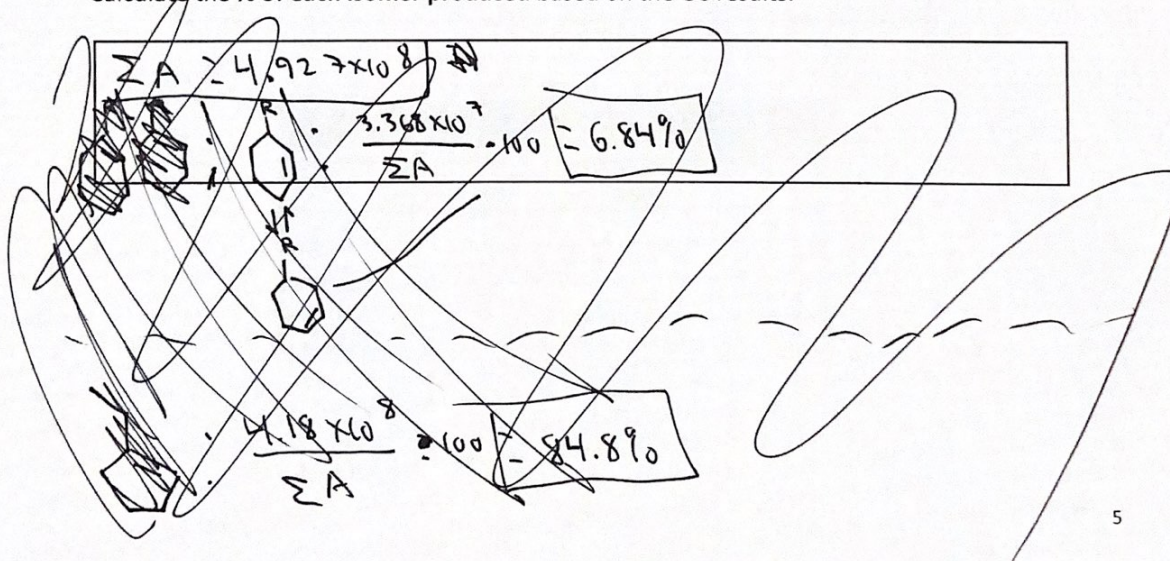 ΣA = 4.927x10^8
R
3.368x10^7 / ΣA · 100 = 6.84%
R
4.18 x10^8 / ΣA · 100 = 84.8%
5